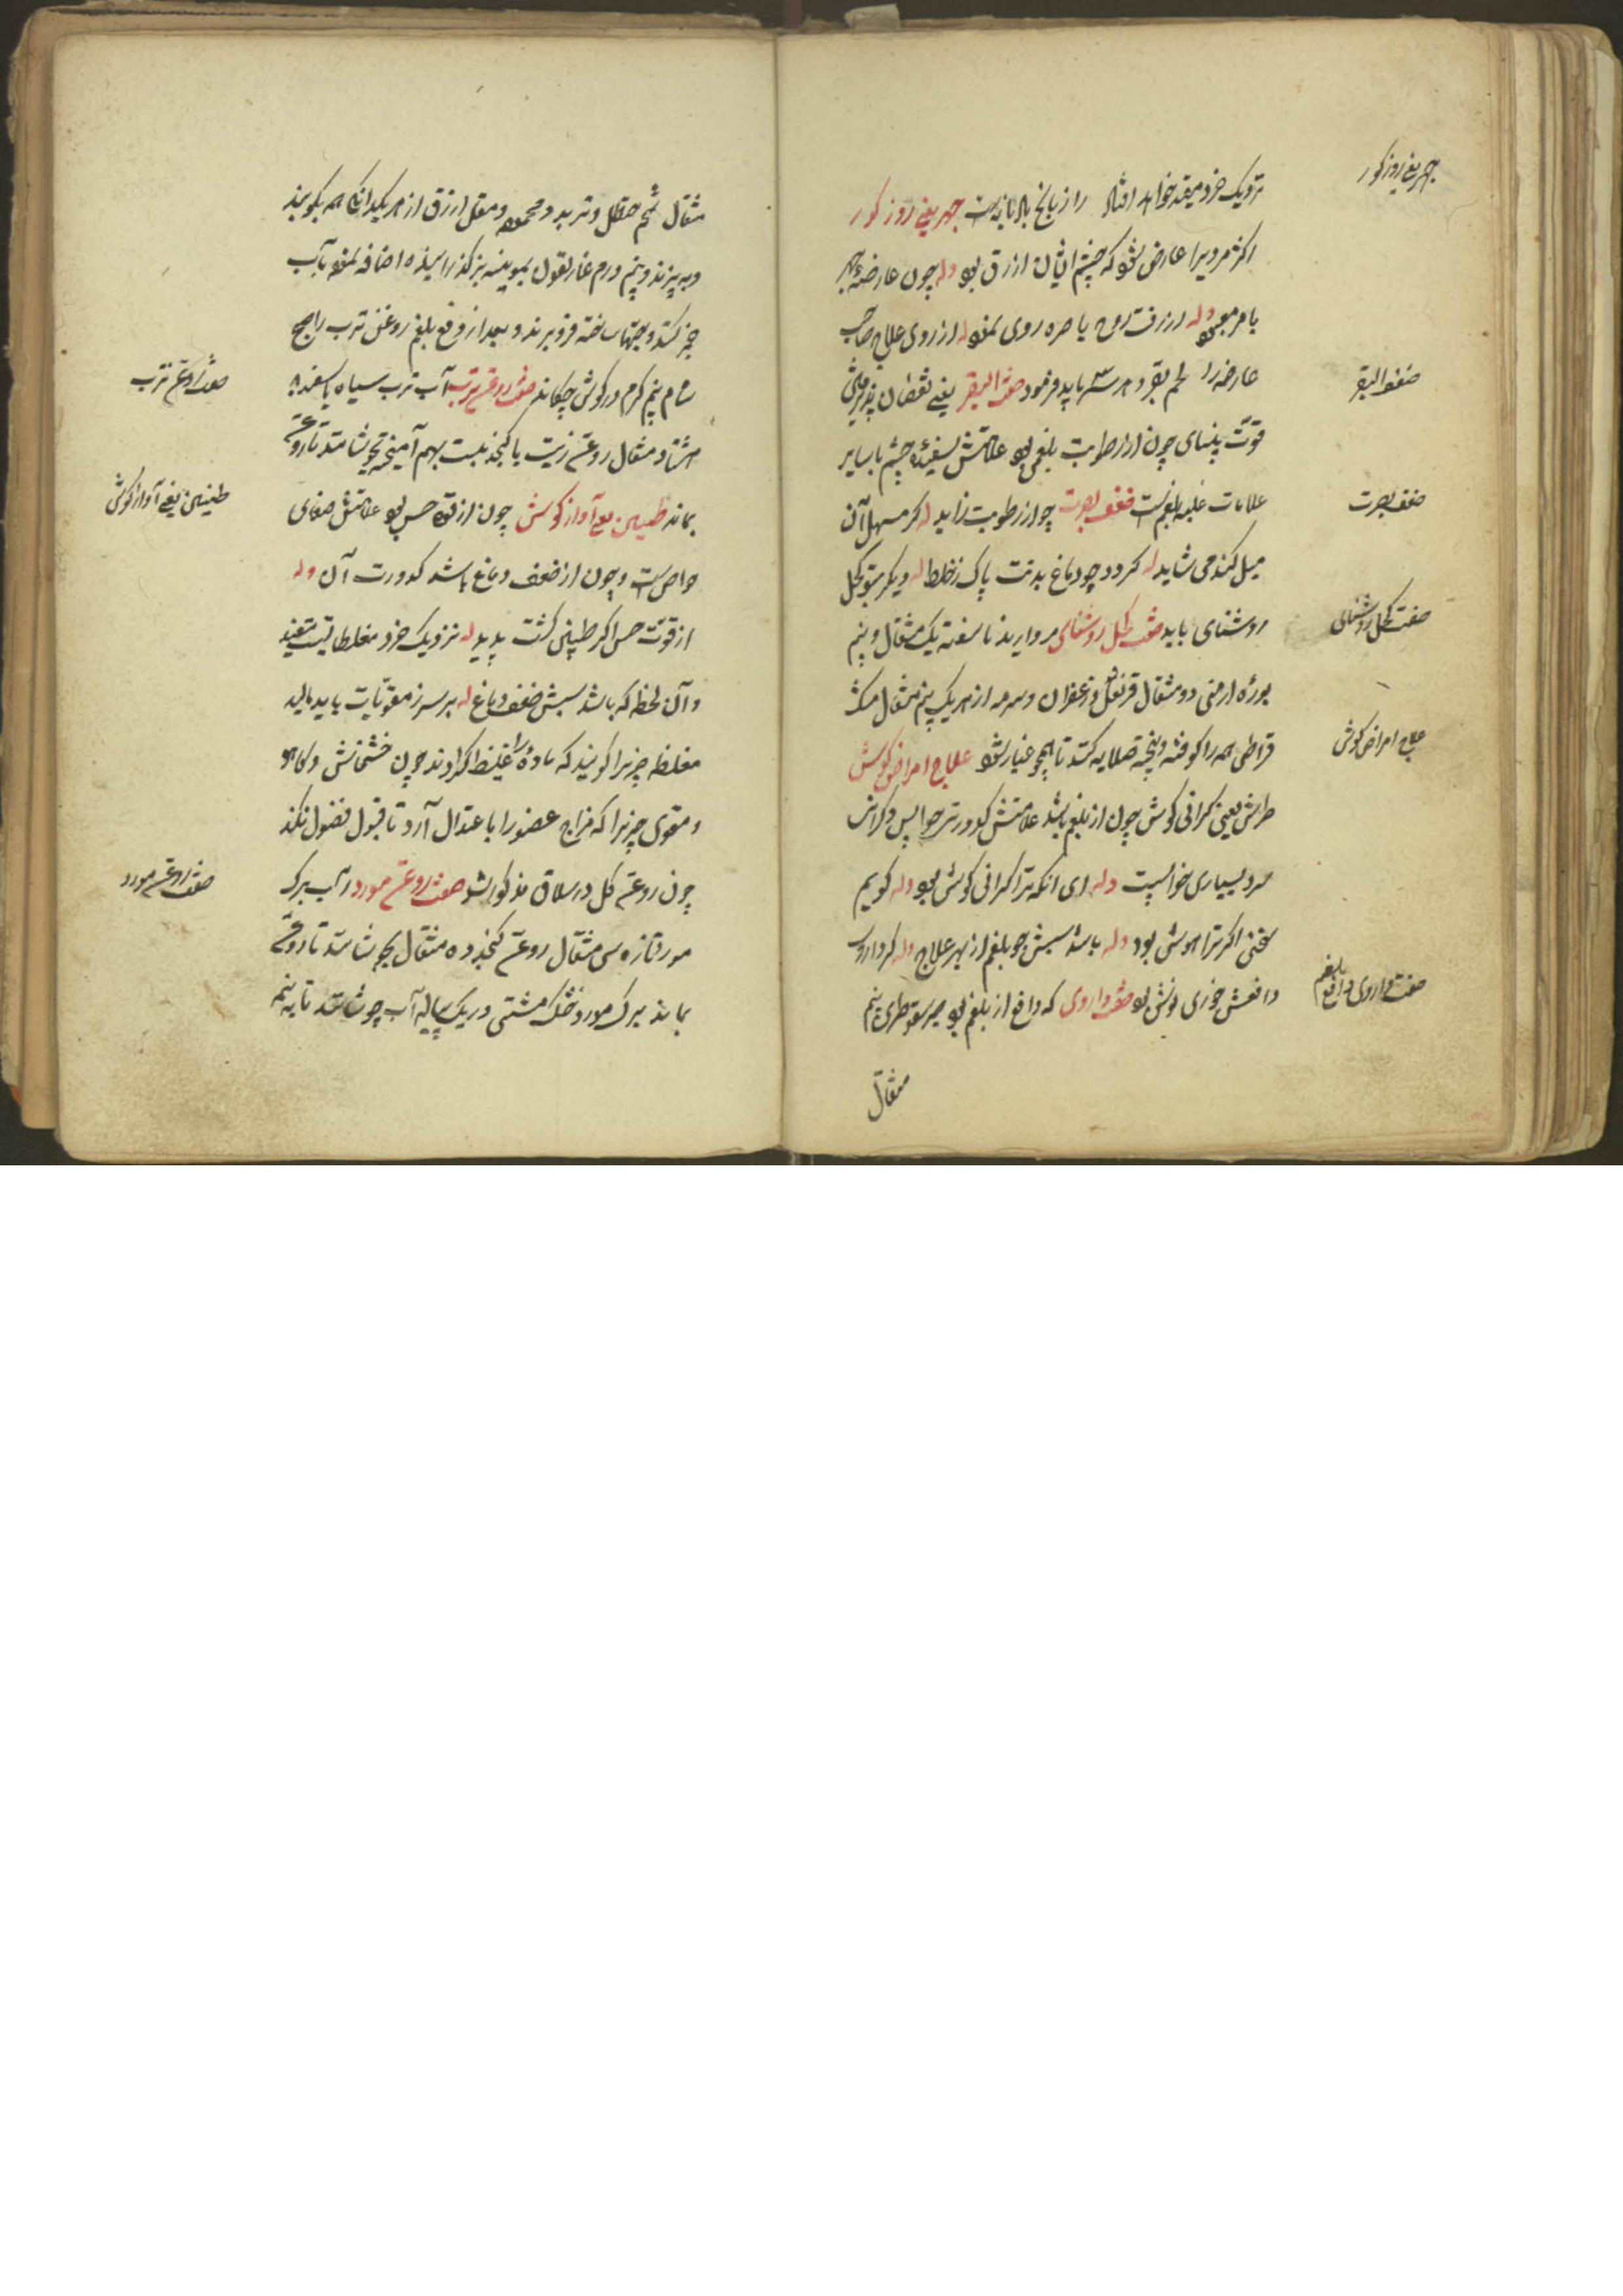 جهر یعنی روز کور
نزدیک خرد میفتد خواهد افتاد را زبانخ بالا نازیست جهر یعنی روز کور
اکثر مردیرا عارض شود که چشم ایشان ازرق بود وله چون عارضهٔ جهر
بامر معبود وله از رقت روح باصره روی نمود له از روی علاج صاحب
عارضه را لحم بقر و باید فرمود ضعف البصر یعنی نقصان پذیرفتن
ضعف البصر
قوت بینای چون از رطوبت بلغمی بود علامتش سفیدی چشم با سایر
علامات غلبه بلغمست ضعف بصرت چو از رطوبت زاید له کر مسهل آن
ضعف بصرت
میل کند می شاید له کردد چو دماغ بدنت پاک زخلط له دیکر بتو کحل
روشنای باید صفت کحل روشنای مروارید ناسفته یک مثقال و نیم
صفت کحل روشنای
بوره ارمنی دو مثقال قرنفل و زعفران و سرمه از هر یک نیم مثقال مشک
قراطی همه را کوفته و بیخته صلایه کنند تا همچو غبار شود علاج امراض کوش
علاج امراض کوش
طرش یعنی کرانی کوش چون از بلغم باشد علامتش کدورت حواس و کرانی
سر و بسیاری خوابست وله ای انکه ترا کرانی کوش بود وله کویم
سخنی اکر ترا هوش بود وله باشد سببش چو بلغم از بهر علاج وله کر داروی
دافعش خوری نوش بود صفت داروی که دافع از بلغم بود صبر سقوطری نیم
صفت داروی دافع بلغم
مثقال
مثقال شحم حنظل و تربد و محموده و مقل ازرق از هر یک دانکی همه بکوبند
و ببیزند و نیم درم غاریقون بموینه بز کذرانیده اضافه نموده بآب
خمیر کنند و حبها ساخته فرو برند و بعد از دفع بلغم روغن ترب را صبح
شام نیم کرم در کوش چکانند صفت روغن ترب آب ترب سیاه یا سفید
صفت روغن ترب
هشتاد مثقال روغن زیت یا کنجد بیست بهم آمیخته بجوشانند تا روغن
بماند طنین یعنی آواز کوش چون از قوة حس بود علامتش صفای
طنین یعنی آواز کوش
حواص است و چون از ضعف دماغ باشد کدورت آن وله
از قوت حس اکر طنینی کشت پدید له نزدیک خرد مغلظاتیست مفید
و آن لحظه که باشد سببش ضعف دماغ له بر سر ز مقویات باید مالید
مغلظه چیزیرا کویند که مادهٔ را غلیظ کرداند چون خشخاش و کاهو
و مقوی چیزیرا که مزاج عضو را باعتدال آرد تا قبول فضول نکند
چون روغن کل در سلاق مذکور شد صفت روغن مورد آب برک
صفت روغن مورد
مورد تازه سی مثقال روغن کنجد ده مثقال بجوشانند تا روغن
بماند برک مورد خشک مشتی در یک پیاله آب جوشانند تا به نیمه